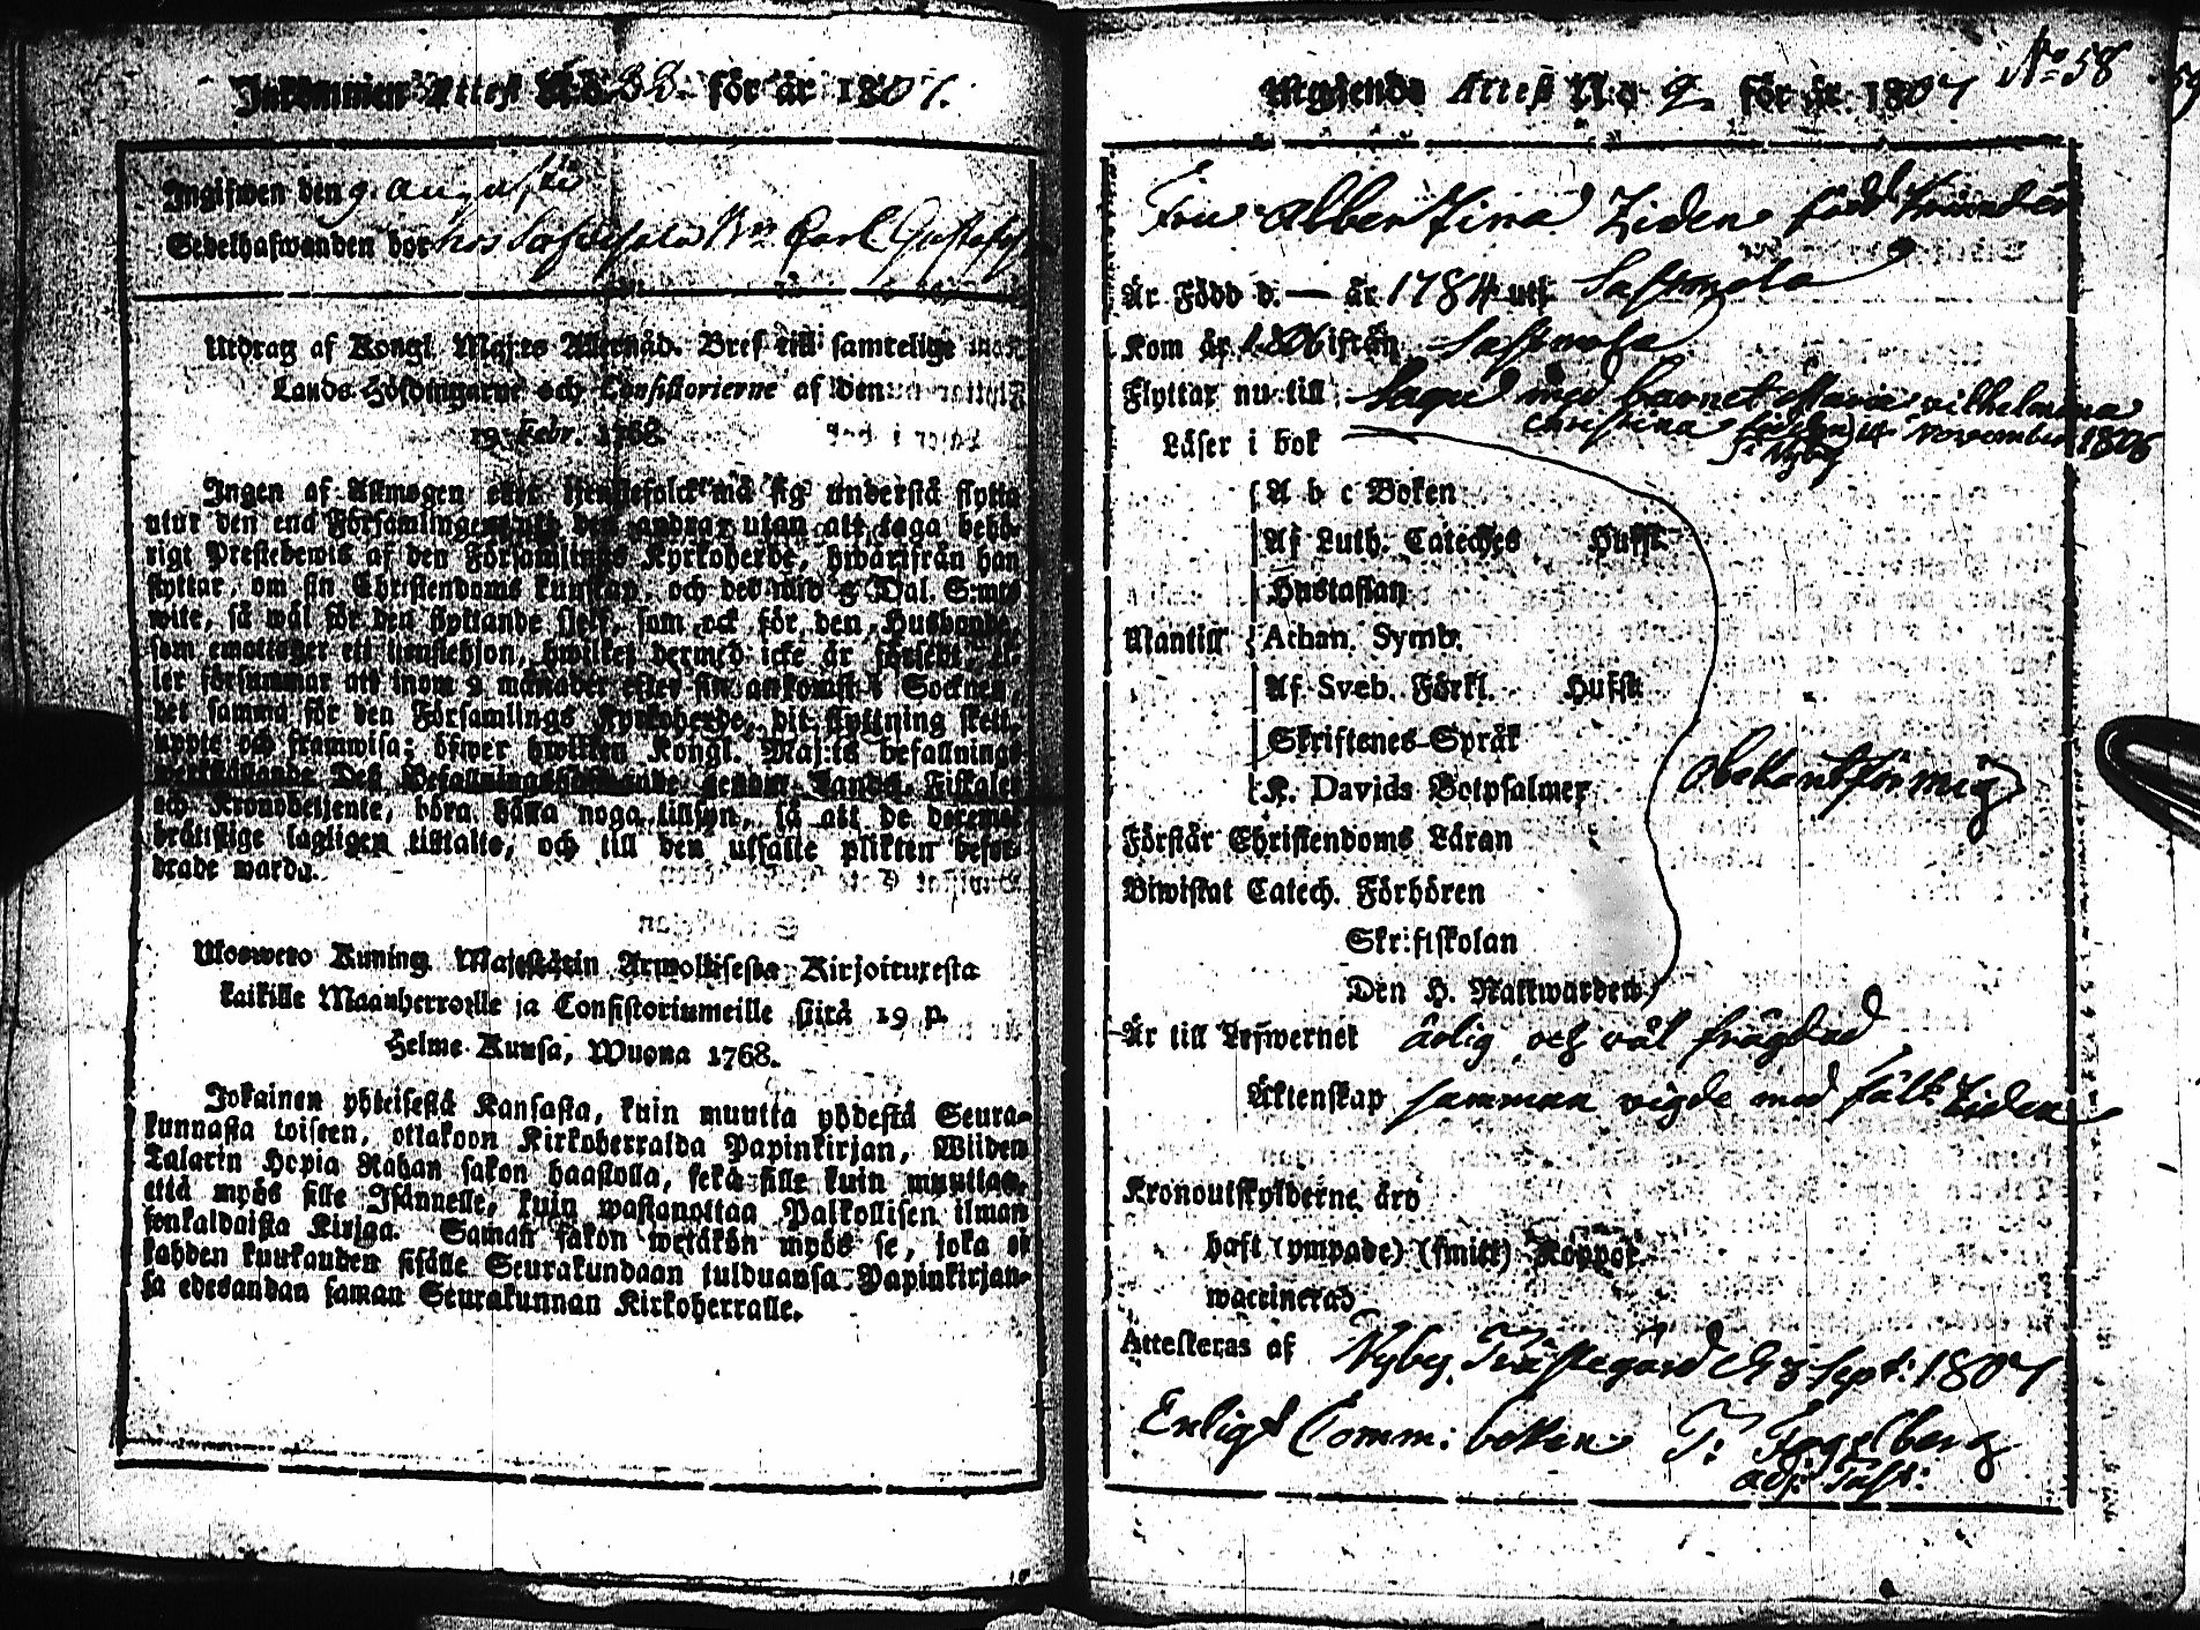 Inkommen Attest N:o 33. för år 1807.
Ingifwen den 9 Augusti
Sedelhafwanden bor hos Carl Gustafs
Utdrag af Kongl. Maj:ts Allernåd. Bref till samtelige
Lands-Höfdingarne och Consistorierne af den
19 Febr. 1768.
Ingen af Allmogen eller tienstefolck må sig understå flytta
utur den ena Församlingen uti den andra, utan att taga behö-
rigt Prestebewis af den Församlings Kyrkoherde, hwarifrån han
flyttar, om sin Christendoms kunskap, och det wid 5 Dal. S:mts
wite, så wäl för den flyttande sjelf, som ock för den Husbonde,
som emottager ett tienstehjon, hwilket dermed icke är försedt, el-
ler försummar att inom 2 månader efter sin ankomst i Socknen,
det samma för den Församlings Kyrkoherde, dit flyttning skett,
uppte och framwisa; öfwer hwilken Kongl. Maj:ts befallnings
werkställande Des Befallningshafwande genom Lands-Fiskaler
och Kronobetjente, böra hålla noga tillsyn, så att de deremot
brättslige lagligen tilltalte, och till den utsatte plikten befor-
drade warda.
Uloswero Kuning. Majestätin Armollisesta Kirjoituxesta
kaikille Maanherroille ja Consistoriumeille siitä 19 p.
Helme-Kuusa, Wuona 1768.
Jokainen yhteisestä Kansasta, kuin muutta yhdestä Seura-
kunnasta toiseen, ottakoon Kirkoherralda Papinkirjan, Wiiden
Talarin Hopia Rahan sakon haastolla, sekä sille kuin muuttaa,
että myös sille Isännelle, kuin wastanottaa Palkollisen ilman
senkaldaista Kirjaa. Saman sakon wetäkön myös se, joka ei
kahden kuukauden sisälle Seurakundaan tulduansa Papinkirjan-
sa edesandan saman Seurakunnan Kirkoherralle.
No 58
Utgående Attest N:o 9 för år 1807
Fru Albertina Ziden född
Är Född d. — år 1784 uti Sastmola
Kom år 1806 ifrån Sastmola
Flyttar nu till Sagu med barnet Maria Wilhelmina
Christina född 14 november 1806
i Nyby
Läser i bok
A b c Boken
Af Luth. Cateches Hufst.
Hustaflan
Utantill Athan. Symb.
Af Sveb. Förkl. Hufst.
Skriftenes-Språk
K. Davids Botpsalmer
obekant för mig
Förstår Christendoms Läran
Biwistat Catech. Förhören
Skriftskolan
Den H. Nattwarden
Är till Lefwernet ärlig och väl frägdad
Äktenskap samman vigde med Ziden
Kronoutskylderne äro
haft (ympade) (smitt) Koppor
waccinerad
Attesteras af Nyby Prästegård d 3 Sept: 1807
Enligt Comm: boken J: Fogelberg
adj: Past: